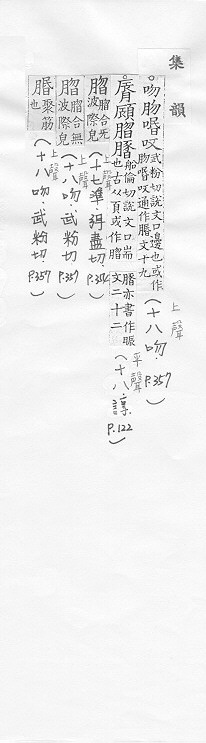 集韻
吻肳㖧呅 武粉切說文口邊也或作肳㖧呅通作脗文十九（上聲十八吻．P.357）
脣顧䐇䐁 船倫切說文口耑也古从頁或作䐇脣亦書作䏮文二十二（平聲十八．諄．P.122）
脗 脗合无波際皃（上聲十準弭盡切．P.354）
脗 脗合無波際皃（上聲十八吻．武粉切．P.357）
㖧 聚筋也（上聲十八吻．武粉切P.357）